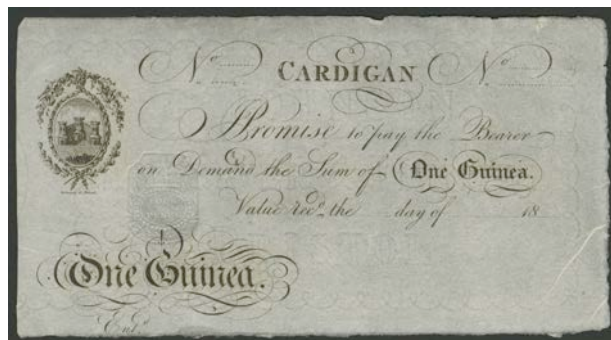 No CARDIGAN No
I Promise to pay the Bearer
on Demand the Sum of One Guinea.
Value recd. the day of 18
One Guinea.
Entd.